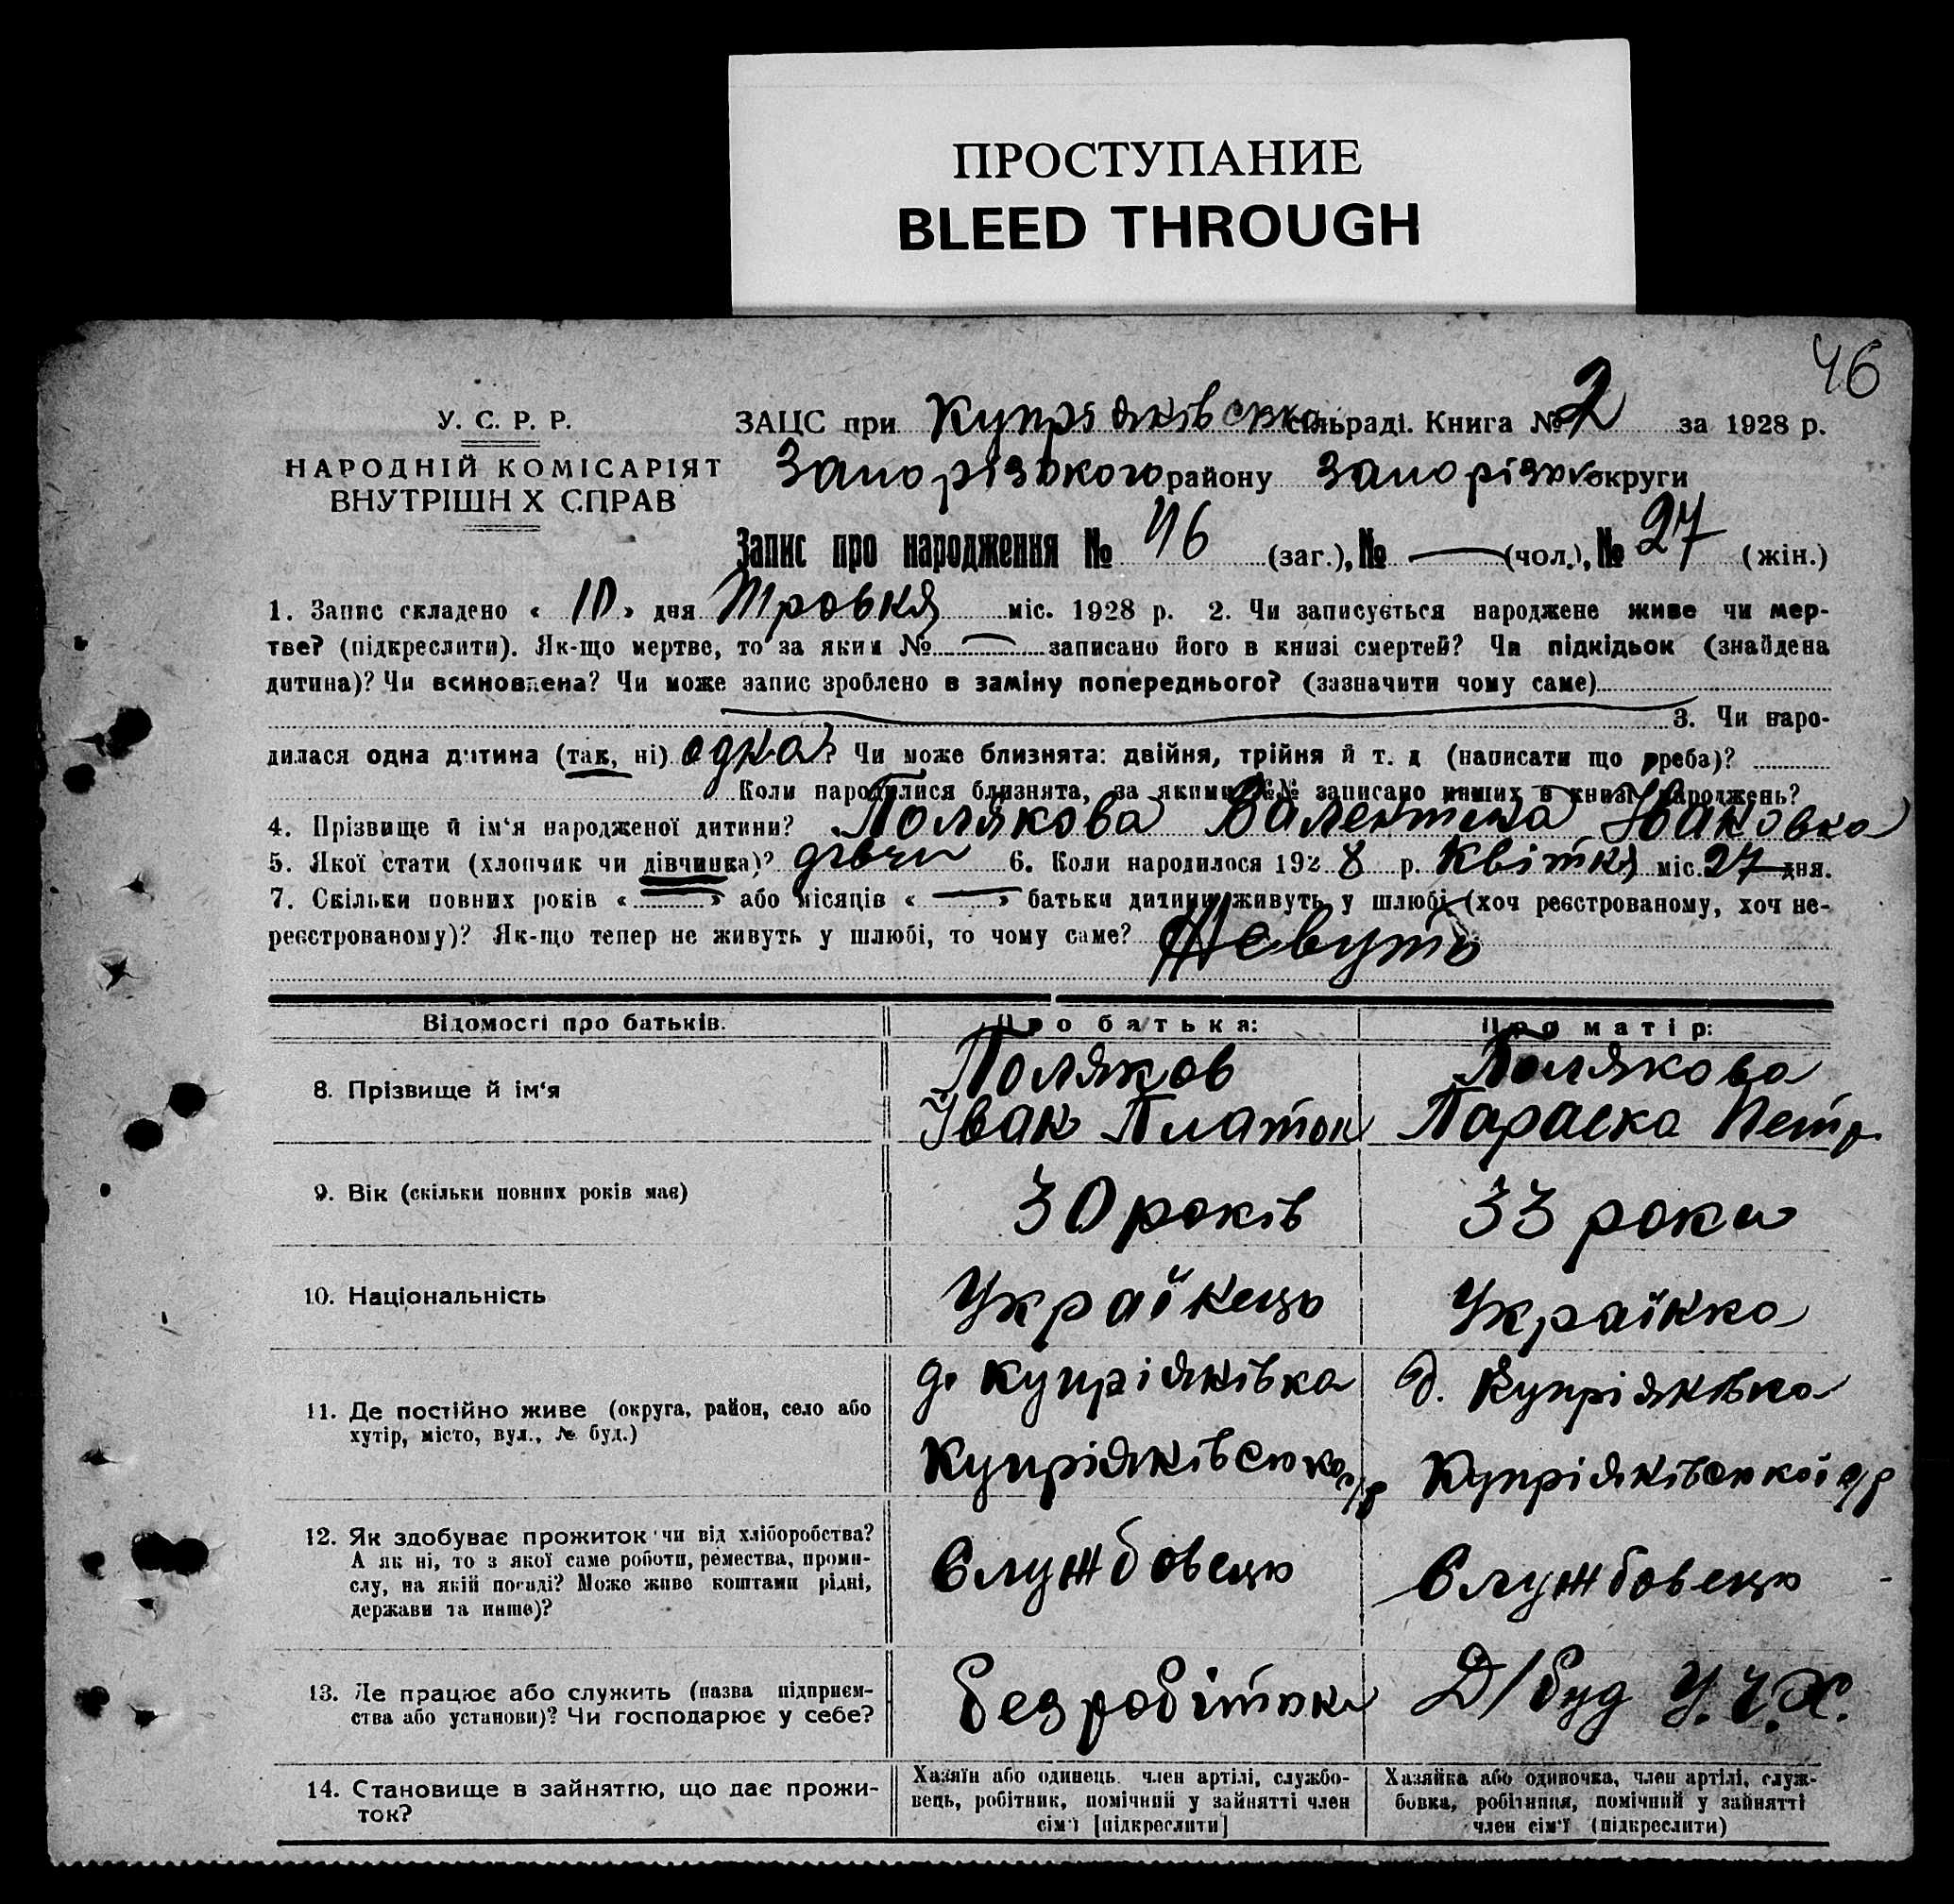 ПРОСТУПАНИЕ
BLEED THROUGH
46
У. С. Р. Р.
НАРОДНІЙ КОМІСАРІЯТ
ВНУТРІШН Х СПРАВ
ЗАЦС при Купріянівська сільраді. Книга № 2 за 1928 р.
Запорізького району Запорізьк округи
Запис про народження № 46 (заг.), № — (чол.), № 27 (жін.)
1. Запис складено « 10 » дня Травня міс. 1928 р. 2. Чи записується народжене живе чи мер-
тве? (підкреслити). Як-що мертве, то за яким № — записано його в книзі смертей? Чи підкідьок (знайдена
дитина)? Чи всиновлена? Чи може запис зроблено в заміну попереднього? (зазначити чому саме)
3. Чи наро-
дилася одна дитина (так, ні) одна? Чи може близнята: двійня, трійня й т. д (написати що треба)?
Коли народилися близнята, за якими №№ записано инших в книзі народжень?
4. Прізвище й ім'я народженої дитини? Полякова Валентина Івановна
5. Якої стати (хлопчик чи дівчинка)? дівчи 6. Коли народилося 1928 р. Квітня міс. 27 дня.
7. Скільки повних років « — » або місяців « — » батьки дитини живуть у шлюбі (хоч реєстрованому, хоч не-
реєстрованому)? Як-що тепер не живуть у шлюбі, то чому саме? Жевуть
Відомості про батьків. Про батька: Про матір:
8. Прізвище й ім'я
Поляков
Іван Платон
Полякова
Параска Петр.
9. Вік (скільки повних років має) 30 років 33 роки
10. Національність Українець Українка
11. Де постійно живе (округа, район, село або
хутір, місто, вул., № буд.)
д. Купріянівка
Купріянівсько с/р
д. Купріянівка
Купріянівської с/р
12. Як здобуває прожиток чи від хліборобства?
А як ні, то з якої саме роботи, ремества, проми-
слу, на якій посаді? Може живе коштами рідні,
держави та инше)?
Службовець
Службовець
13. Де працює або служить (назва підприєм-
ства або установи)? Чи господарює у себе?
безробітний
Д/буд У.Ч.Х.
14. Становище в зайняттю, що дає прожи-
ток?
Хазяїн або одинець. член артілі, службо-
вець, робітник, помічний у зайнятті член
сім'ї [підкреслити]
Хазяйка або одиночка, член артілі, служ-
бовка, робітниця, помічний у зайнятті
член сім'ї (підкреслити)